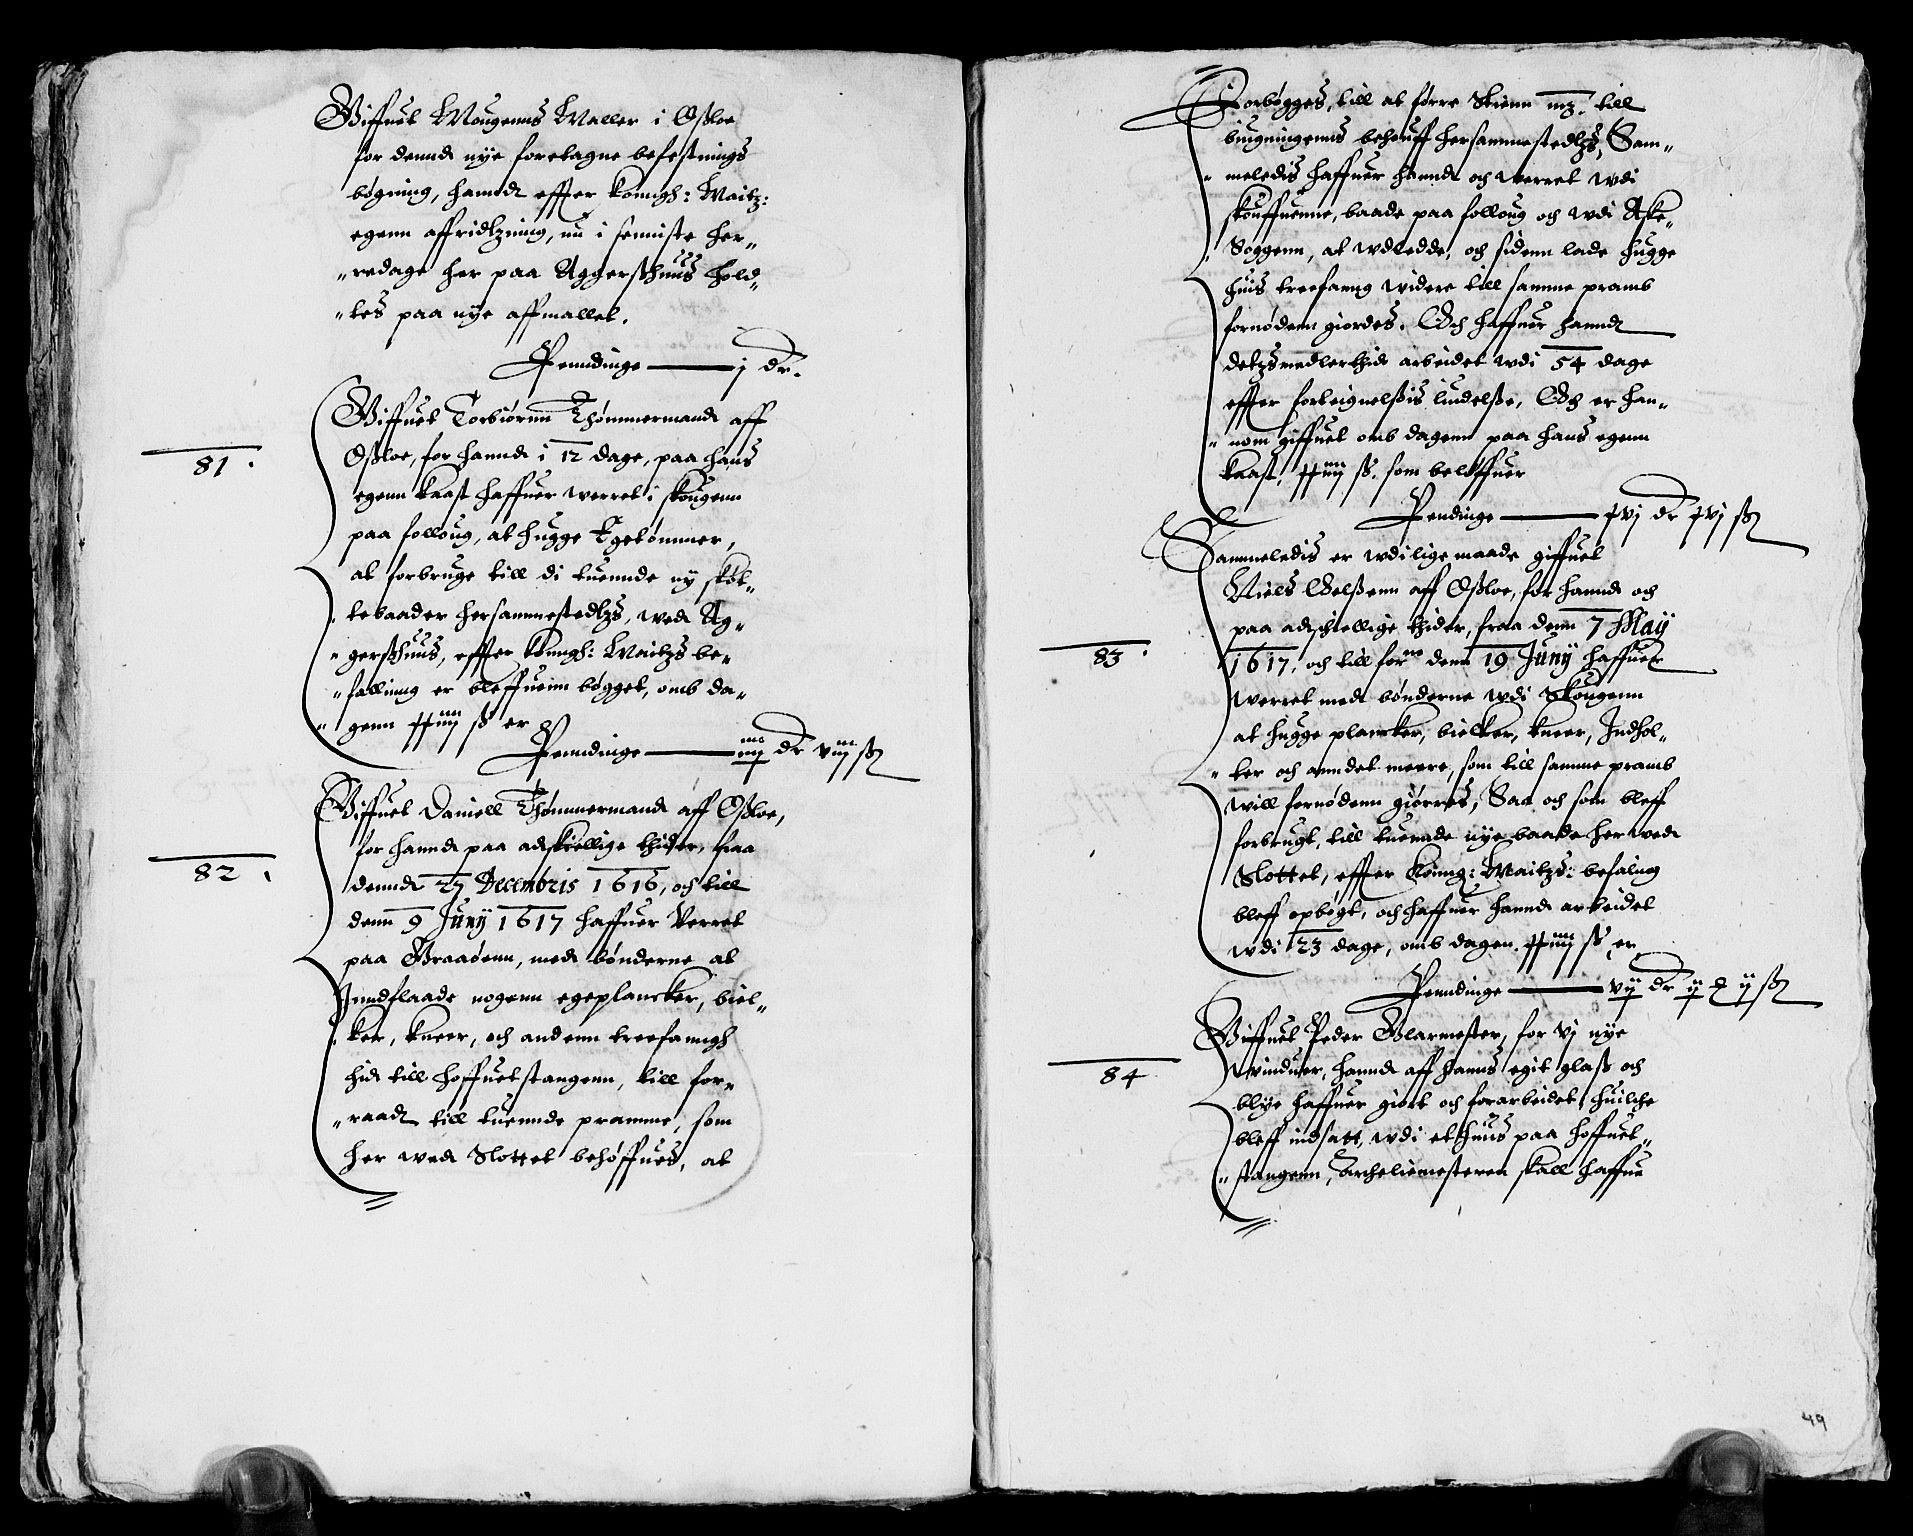 Giffuet Mougenns Maller i Oßloe
for dennd nye foretagne befestnings
bøgning, hannd effter Konngh: Maitz:
egenn affridtzning, nu i seniste Her„
„redage her paa Aggerßhuus hold„
„tes paa nye affmallet.
Penndinge j dr.
81.
Giffuet Torbiørnn Thømmermand aff
Oßloe, for hannd i 12 dage, paa hans
egenn kaast haffuer werret i skougenn
paa folloug, at hugge Egetømmer,
at forbruge till di tuennde ny skøt„
tebaader hersammestedtzs, wed Ag„
„gerßhuus, effter Konngh: Maitzs be„
„fallinng er bleffuenn bøgget, omb da„
„genn ꝉꝉiiij ß er
Penndinge iiij dr viij ß
82.
Giffuet Daniell Thømmermand aff Oßloe,
for hannd paa adskiellige thider, fraa
dennd 27 Decembris 1616, och till
denn 9 Junij 1617 haffuer Verret
paa Graaøenn, med bønderne at
Inndflaade nogenn egeplancker, biel„
ker, kneer, och andenn treefanngh
hid till hoffuetstangenn, till for„
„raad till tuennde pramme, som
her wed Slottet behøffues, at
Forbøgges, till at førre Stienn mz. till
biugningenns behouff hersammestedtzs, Sam„
„meledis haffuer hannd och werret wdi
skouffuenne, baade paa folloug och wdi Aske„
Soggenn, at wdledde, och sidenn lade hugge
huis treefanng widere till samme pramb
fornødenn giordes. Och haffuer hannd
detzsmedlerthid arbeidet wdi 54 dage
effter forteignelßis liudelße, Och er han„
„nom giffuet omb dagenn paa hans egenn
kaast, ꝉꝉiiij ß. som beløffuer
Pendinge xvj dr xvj ß
83.
Sammeledis er wdi lige maade giffuet
Niels Oelßenn aff Oßloe, for hannd och
paa adschiellige thider, fraa denn 7 Maij
1617, och till forne denn 19 Junij haffuer
werret med bønderne wdi Skougenn
at hugge plancker, bielker, kneer, Indhol„
„ter och anndet meere, som till samme pramb
will fornødenn giørres, Saa och som bleff
forbrugt, till tuennde nye baade her wed
Slottet, effter Konng: Maitzs: befaling
bleff opbøgt, och haffuer hannd arbeidet
wdi 23 dage, omb dagen ꝉꝉiiij ß er
Penndinge vij dr ij ꝉ ij ß
84
Giffuet Peder Glarmester, for vj nye
winduer, hannd aff hanns egit glaß och
blye haffuer giort och forarbeidet, huilche
bleff indsatt, wdi et huus paa hoffuet„
„stangenn, Archeliemesteren skall haffue
49